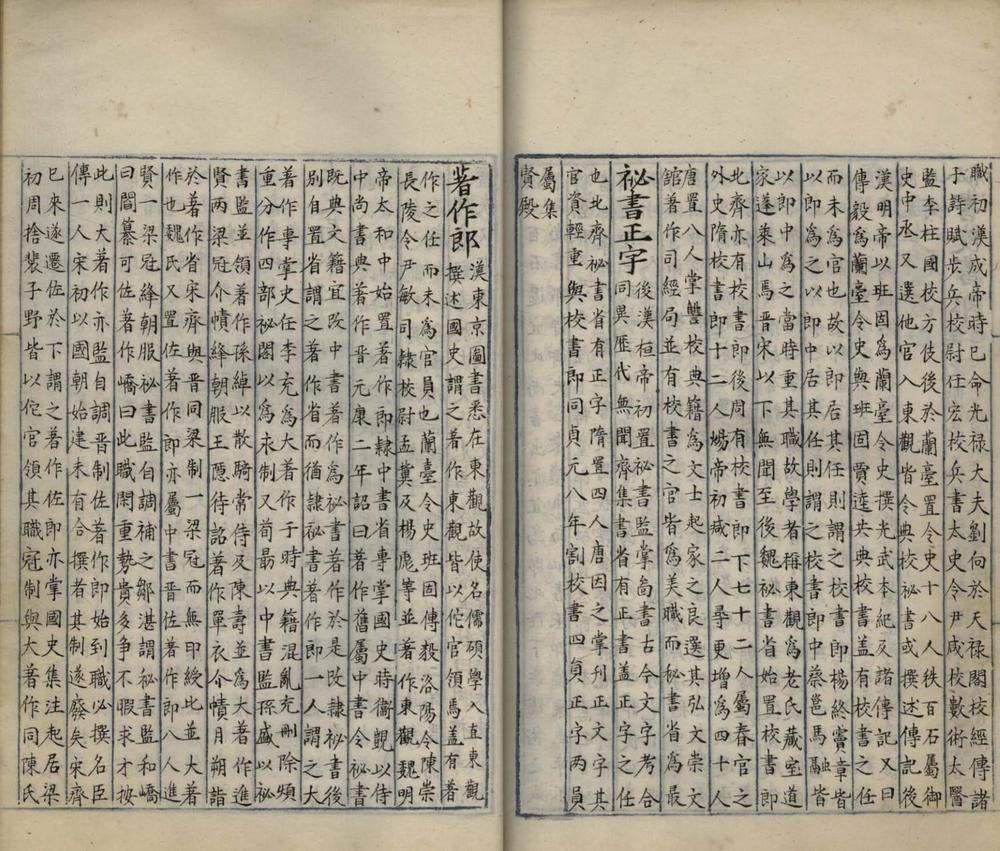 職初漢成帝時已命光禄大夫劉向於天禄閣校經傳諸
子于詩賦步兵校尉任宏校兵書太史令尹咸校數術太醫
監李柱國校方伎後於蘭臺置令史十八人秩百石屬御
史中丞又選他官入東觀皆令典校秘書或撰述傳記後
漢明帝以班固爲蘭臺令史撰光武本紀及諸傳記又曰
傳毅爲蘭臺令史與班固賈逵共典校書蓋有校書之任
而未爲官也故以郎居其任則謂之校書郎楊終竇章皆
以郎爲之以郎中居其任則謂之校書郎中蔡邕馬融皆
以郎中爲之當時重其職故學者稱東觀爲老氏藏室道
家蓬萊山馬晉宋以下無聞至後魏秘書省始置校書郎
北齊亦有校書郎後周有校書郎下七十二人屬春官之
外史隋校書郎十二人煬帝初减二人尋更增爲四十人
唐置八人掌讐校典籍爲文士起家之良選其弘文崇文
館著作司經局並有校書之官皆爲美職而秘書省爲最
祕書正字
後漢桓帝初置秘書監掌啚書古今文字考合
同異歷代無聞齊集書省有正書蓋正字之任
也北齊秘書省有正字隋置四人唐因之掌刊正文字其
官資輕重與校書郎同貞元八年割校書四員正字兩員
屬集
賢殿
著作郎
漢東京圖書悉在東觀故使名儒碩學入直東觀
撰述國史謂之著作東觀皆以佗官領馬蓋有著
作之任而未爲官員也蘭臺令史班固傳毅洛陽令陳崇
長陵令尹敏司隸校尉孟冀及楊彪等並著作東觀魏明
帝太和中始置著作郎隸中書省專掌國史時衞覬以侍
中尚書典著作晉元康二年詔曰著作舊屬中書令秘書
既典文籍宜改中書著作爲秘書著作於是改隸秘書後
別自置省謂之著作省而猶隸秘書著作郎一人謂之大
著作專掌史任李充爲大著作于時典籍混亂充刪除煩
重分作四部祕閣以爲永制又荀勗以中書監孫盛以祕
書監並領著作孫綽以散騎常侍及陳壽並爲大著作進
賢兩梁冠介幘絳朝服王隱待詔著作單衣介幘月朔詣
於著作省宋齊與晉同梁制一梁冠而無印綬此並大著
作也魏氏又置佐著作郎亦屬中書晉佐著作郎八人進
賢一梁冠絳朝服秘書監自調補之鄒湛謂秘書監和嶠
曰閻纂可佐著作嶠曰此職閑重勢貴多爭不暇求才按
此則大著作亦監自調晉制佐著作郎始到職必撰名臣
傳一人宋初以國朝始建未有合撰者其制遂廢矣宋齊
已來遂遷佐於下謂之著作佐郎亦掌國史集注起居梁
初周捨裴子野皆以佗官領其職冠制與大著作同陳氏